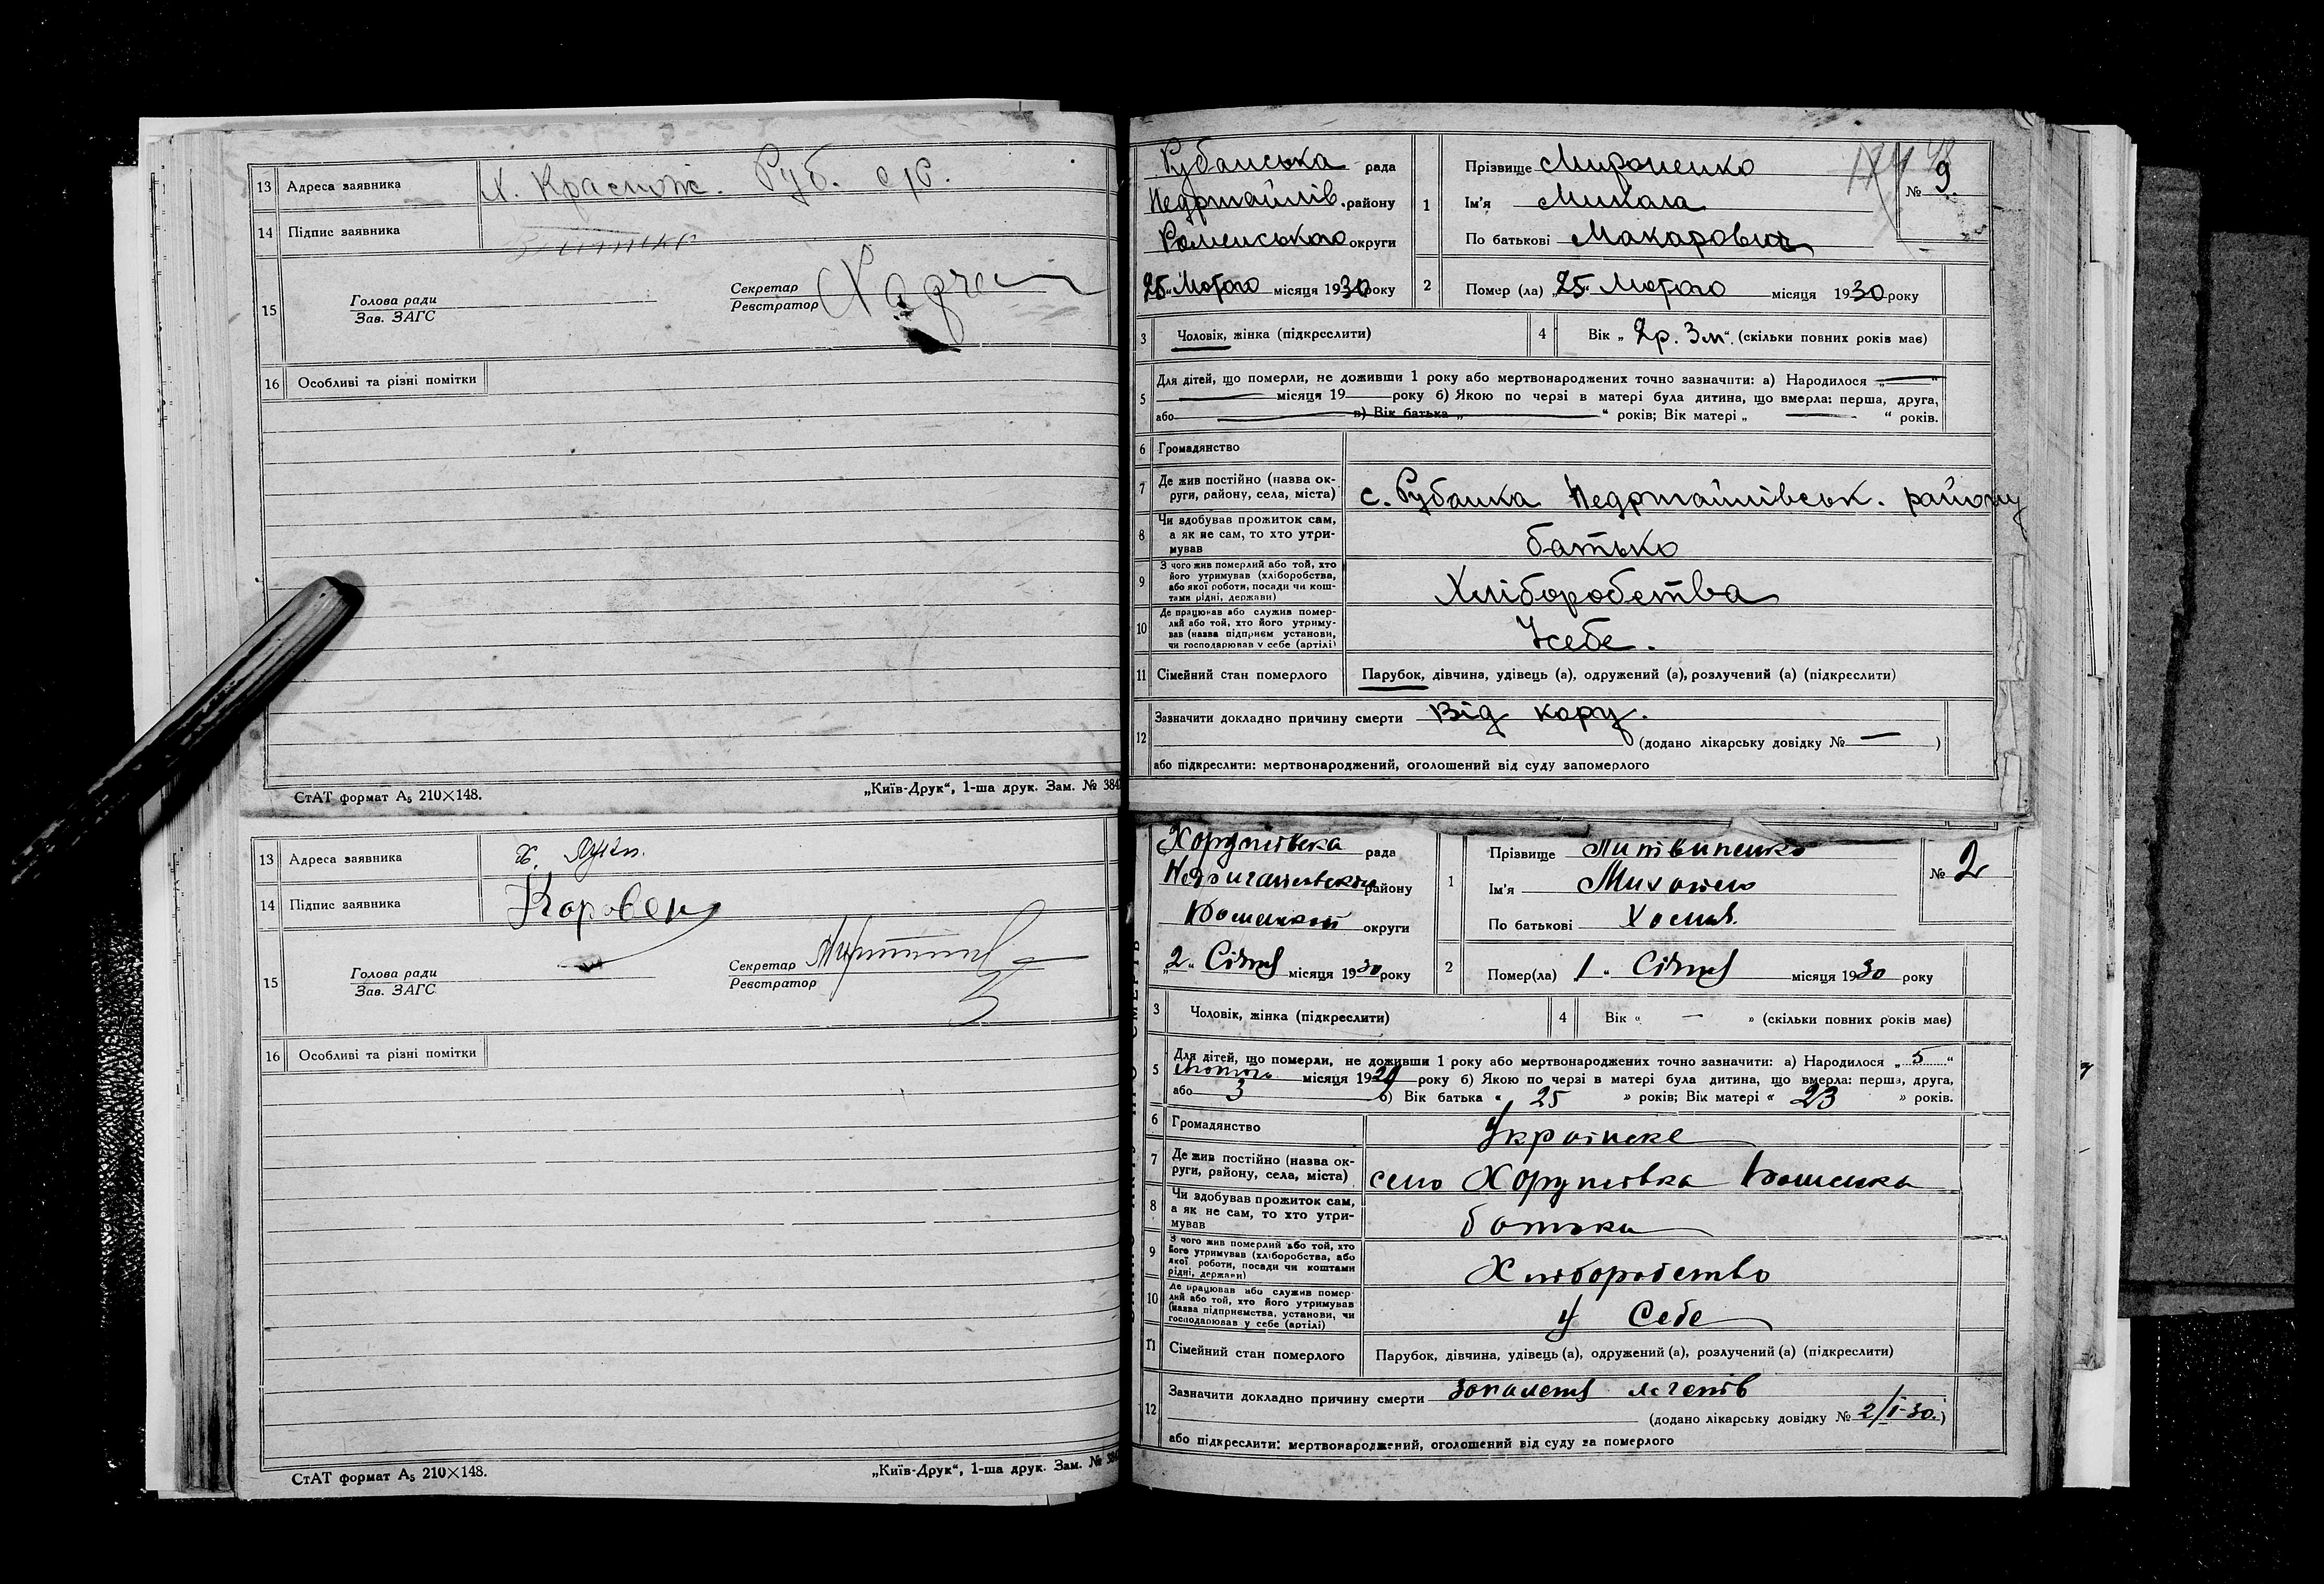 13 Адреса заявника Х. Краснояс. Руб. с/р.
14 Підпис заявника
15 Голова ради
Зав. ЗАГС
Секретар
Реєстратор
16 Особливі та різні помітки
СтАТ формат А₅ 210×148. „Київ-Друк“, 1-ша друк. Зам. № 384
13 Адреса заявника х.
14 Підпис заявника
15 Голова ради
Зав. ЗАГС
Секретар
Реєстратор
16 Особливі та різні помітки
СтАТ формат А₅ 210×148. „Київ-Друк“, 1-ша друк. Зам. №
Рубанська рада
Недригайлів. району
Роменського округи
25 „Лютого місяця 1930 року
1 Прізвище Мироненко
Ім'я Микола
По батькові Макарович
№ 9.
2 Помер (ла) „25“ Лютого місяця 1930 року
3 Чоловік, жінка (підкреслити)
4 Вік „ 2р. 3м“. (скільки повних років має)
5 Для дітей, що померли, не доживши 1 року або мертвонароджених точно зазначити: а) Народилося „—“
— місяця 19— року б) Якою по черзі в матері була дитина, що вмерла: перша, друга,
або — в) Вік батька „ — “ років; Вік матері „ — “ років.
6 Громадянство
7 Де жив постійно (назва ок-
руги, району, села, міста) с. Рубанка Недригайлівськ. району
8 Чи здобував прожиток сам,
а як не сам, то хто утри-
мував батько
9 З чого жив померлий або той, хто
його утримував (хліборобства,
або якої роботи, посади чи кош-
тами рідні, держави) Хліборобства
10 Де працював або служив помер-
лий або той, хто його утриму-
вав (назва підприєм установи,
чи господарював у себе (артілі) Усебе.
11 Сімейний стан померлого Парубок, дівчина, удівець (а), одружений (а), розлучений (а) (підкреслити)
12 Зазначити докладно причину смерти Від кору.
(додано лікарську довідку № — )
або підкреслити: мертвонароджений, оголошений від суду запомерлого
Хоружівська рада
району
округи
„2“ Січня місяця 1930 року
1 Прізвище Литвиненко
Ім'я Михайло
По батькові Хомов.
№ 2
2 Помер(ла) 1 „ Січня місяця 1930 року
3 Чоловік, жінка (підкреслити)
4 Вік „ — » (скільки повних років має)
5 Для дітей, що померли, не доживши 1 року або мертвонароджених точно зазначити: а) Народилося „ 5 “
лютого місяця 1929 року б) Якою по черзі в матері була дитина, що вмерла: перша, друга,
або 3 в) Вік батька « 25 » років; Вік матері « 23 » років.
6 Громадянство Українське
7 Де жив постійно (назва ок-
руги, району, села, міста) село Хоружівка
8 Чи здобував прожиток сам,
а як не сам, то хто утри-
мував батьки
9 З чого жив померлий або той, хто
його утримував (хліборобства, або
якої роботи, посади чи коштами
рідні, держави) Хліборобство
10 Де працював або служив помер-
лий або той, хто його утримував
(назва підприємства, установи, чи
господарював у себе (артілі) у себе
11 Сімейний стан померлого Парубок, дівчина, удівець (а), одружений (а), розлучений (а) (підкреслити)
12 Зазначити докладно причину смерти запаленя легенів
(додано лікарську довідку № 2/I-30.)
або підкреслити: мертвонароджений, оголошений від суду за померлого